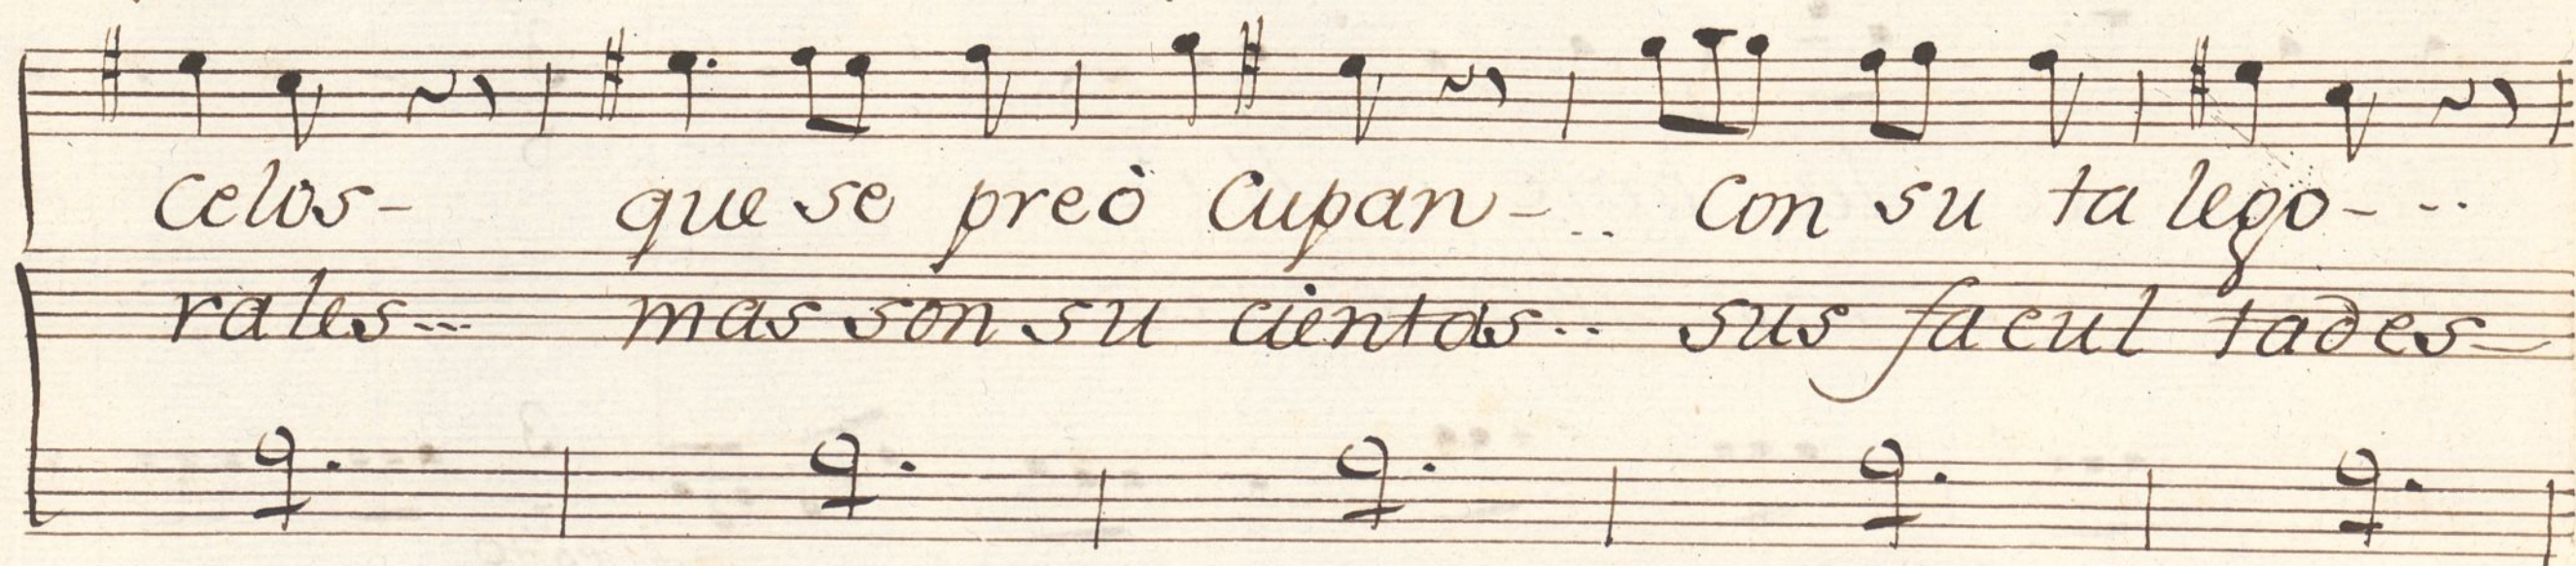 celos- que se preò cupan-.. con su ta lego-...
rales... mas son su cientos.. sus facul tades-